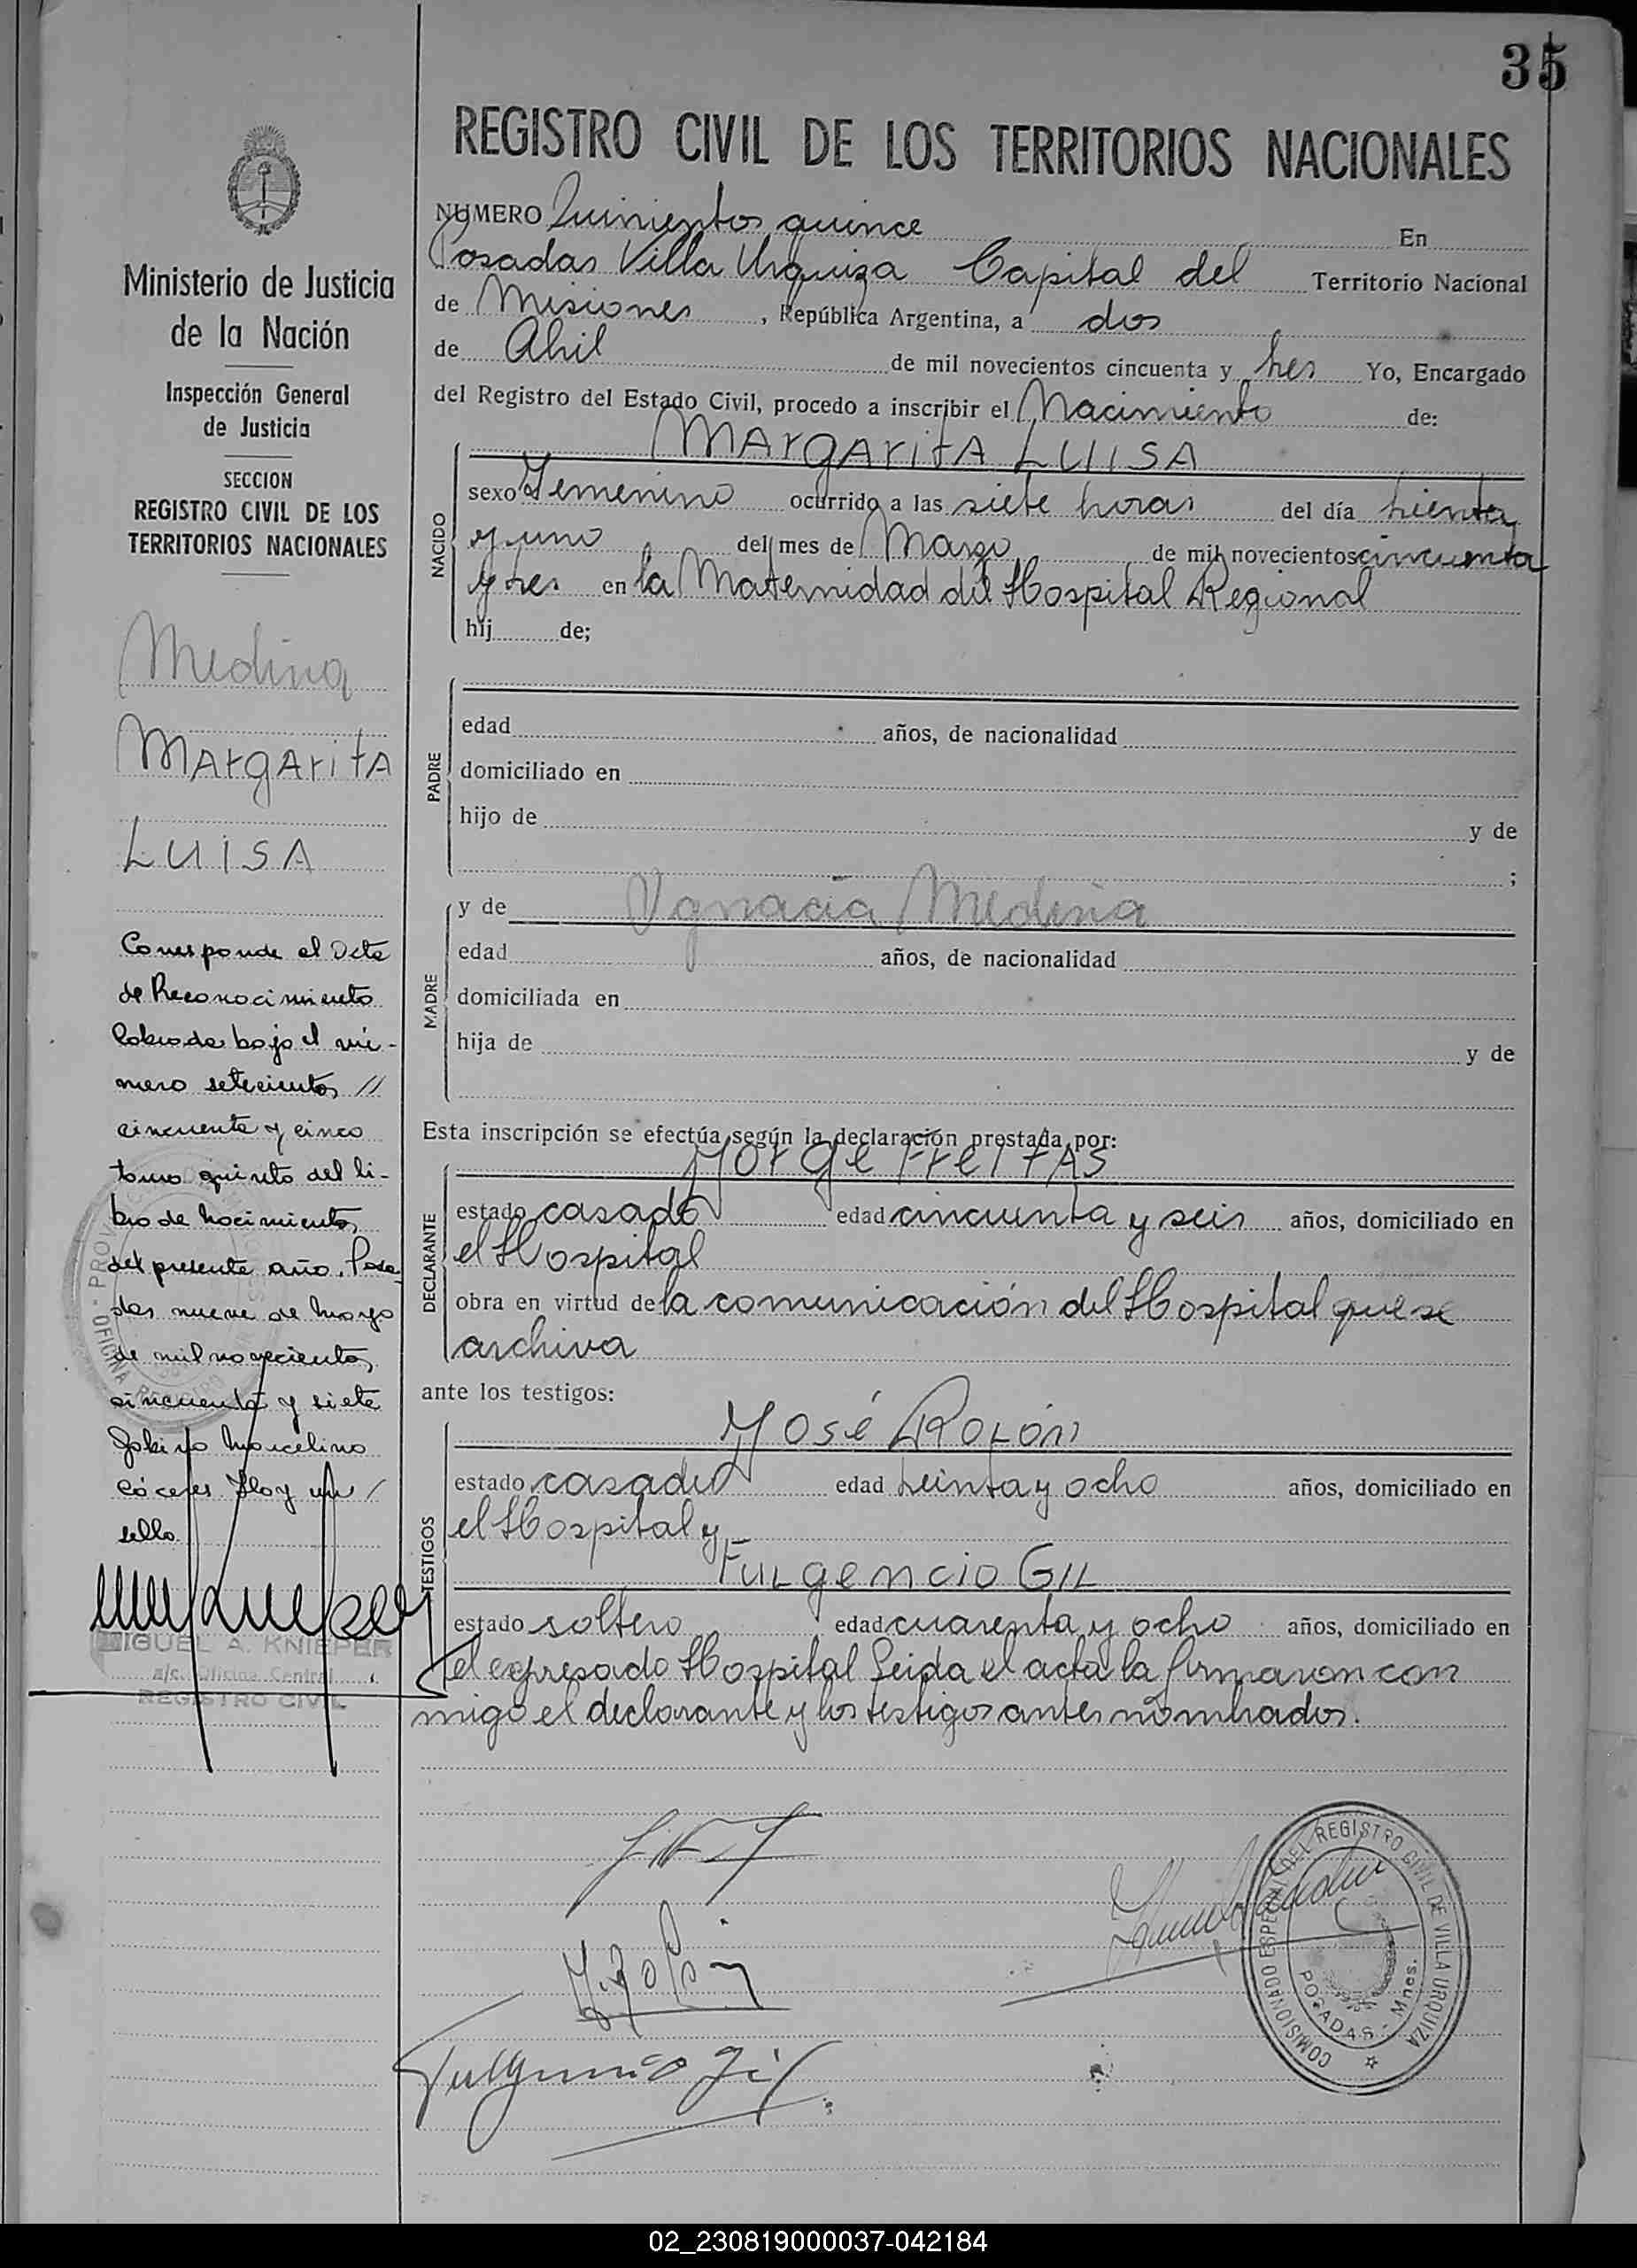 35
REGISTRO CIVIL DE LOS TERRITORIOS NACIONALES
NUMERO Quinientos quince En
Posadas Villa Urquiza Capital del Territorio Nacional
de Misiones, República Argentina, a dos
de Abril de mil novecientos cincuenta y tres Yo, Encargado
del Registro del Estado Civil, procedo a inscribir el Nacimiento de:
MArgAritA LUISA
NACIDO
sexo Femenino ocurrido a las siete horas del día treinta
y uno del mes de Marzo de mil novecientos cincuenta
y tres en la Maternidad del Hospital Regional
hij de;
PADRE
edad años, de nacionalidad
domiciliado en
hijo de y de
;
MADRE
y de Ygnacia Medina
edad años, de nacionalidad
domiciliada en
hija de y de
Esta inscripción se efectúa según la declaración prestada por:
Jorge FreitAS
DECLARANTE
estado casado edad cincuenta y seis años, domiciliado en
el Hospital
obra en virtud de la comunicación del Hospital que se
archiva
ante los testigos:
José ROLÓn
TESTIGOS
estado casado edad treinta y ocho años, domiciliado en
el Hospital y
FuLgencio GIL
estado soltero edad cuarenta y ocho años, domiciliado en
el expresado Hospital Leida el acta la firmaron con
migo el declarante y los testigos antes nombrados.
J. Rolón
Fulgencio Gil
COMISIONADO ESPECIAL DEL REGISTRO CIVIL DE VILLA URQUIZA
POSADAS - Mnes.
Ministerio de Justicia
de la Nación
Inspección General
de Justicia
SECCION
REGISTRO CIVIL DE LOS
TERRITORIOS NACIONALES
Medina
MArgAritA
LUISA
Corresponde el Acta
de Reconocimiento
labrada bajo el nú-
mero setecientos //
cincuenta y cinco
tomo quinto del li-
bro de Nacimientos
del presente año. Posa-
das nueve de Mayo
de mil novecientos
cincuenta y siete
Marcelino
Cáceres Hay un /
sello.
MIGUEL A. KNIEPER
a/c. Oficina Central
REGISTRO CIVIL
02_230819000037-042184